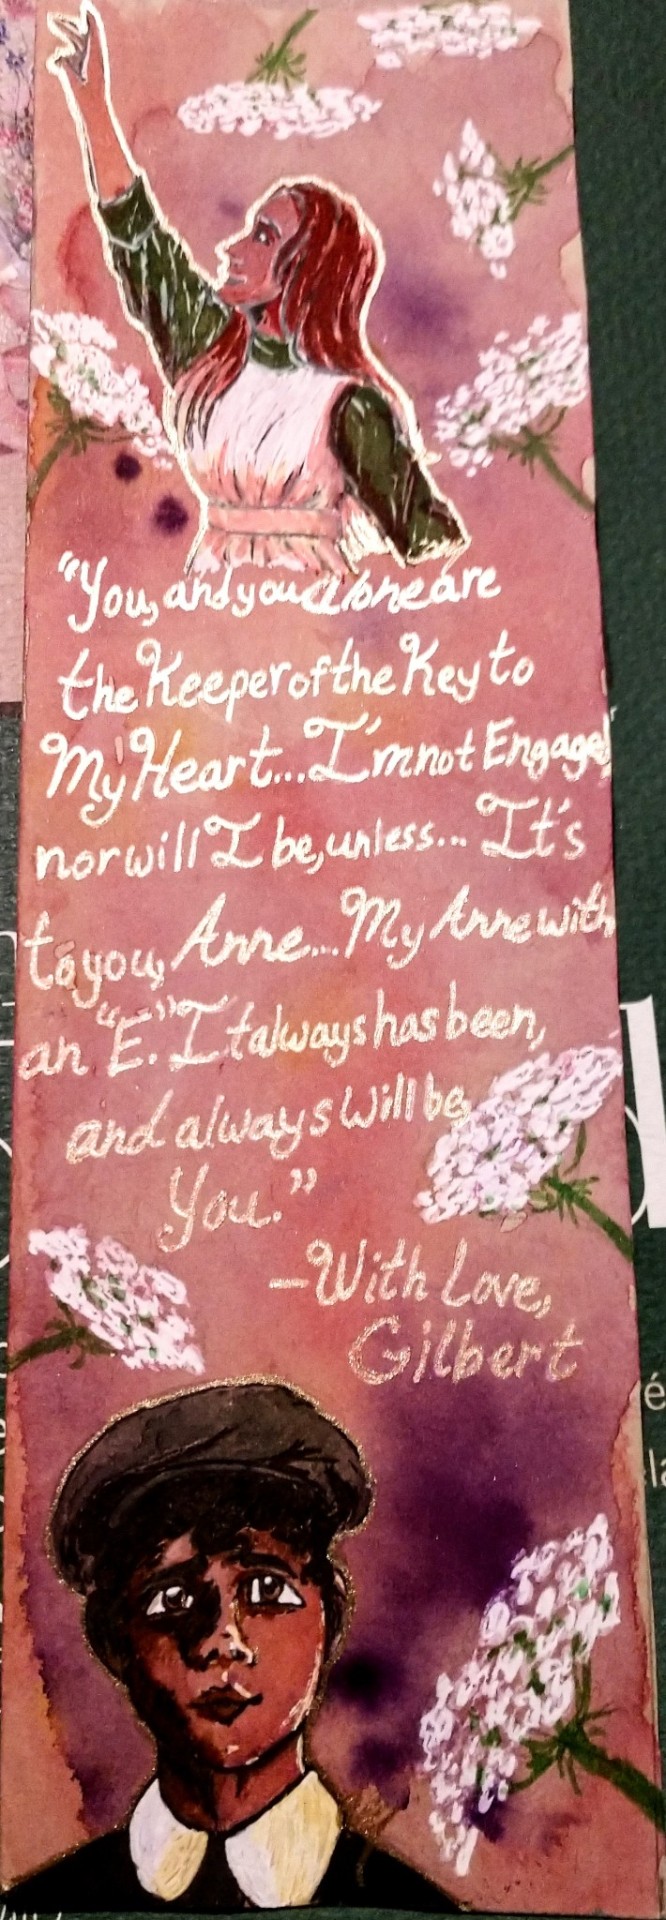 "You, and you alone are
the Keeper of the Key to
My Heart... I'm not Engaged
nor will I be, unless... It's
to you, Anne... My Anne with
an "E." It always has been,
and always Will be,
You."
-With Love,
Gilbert